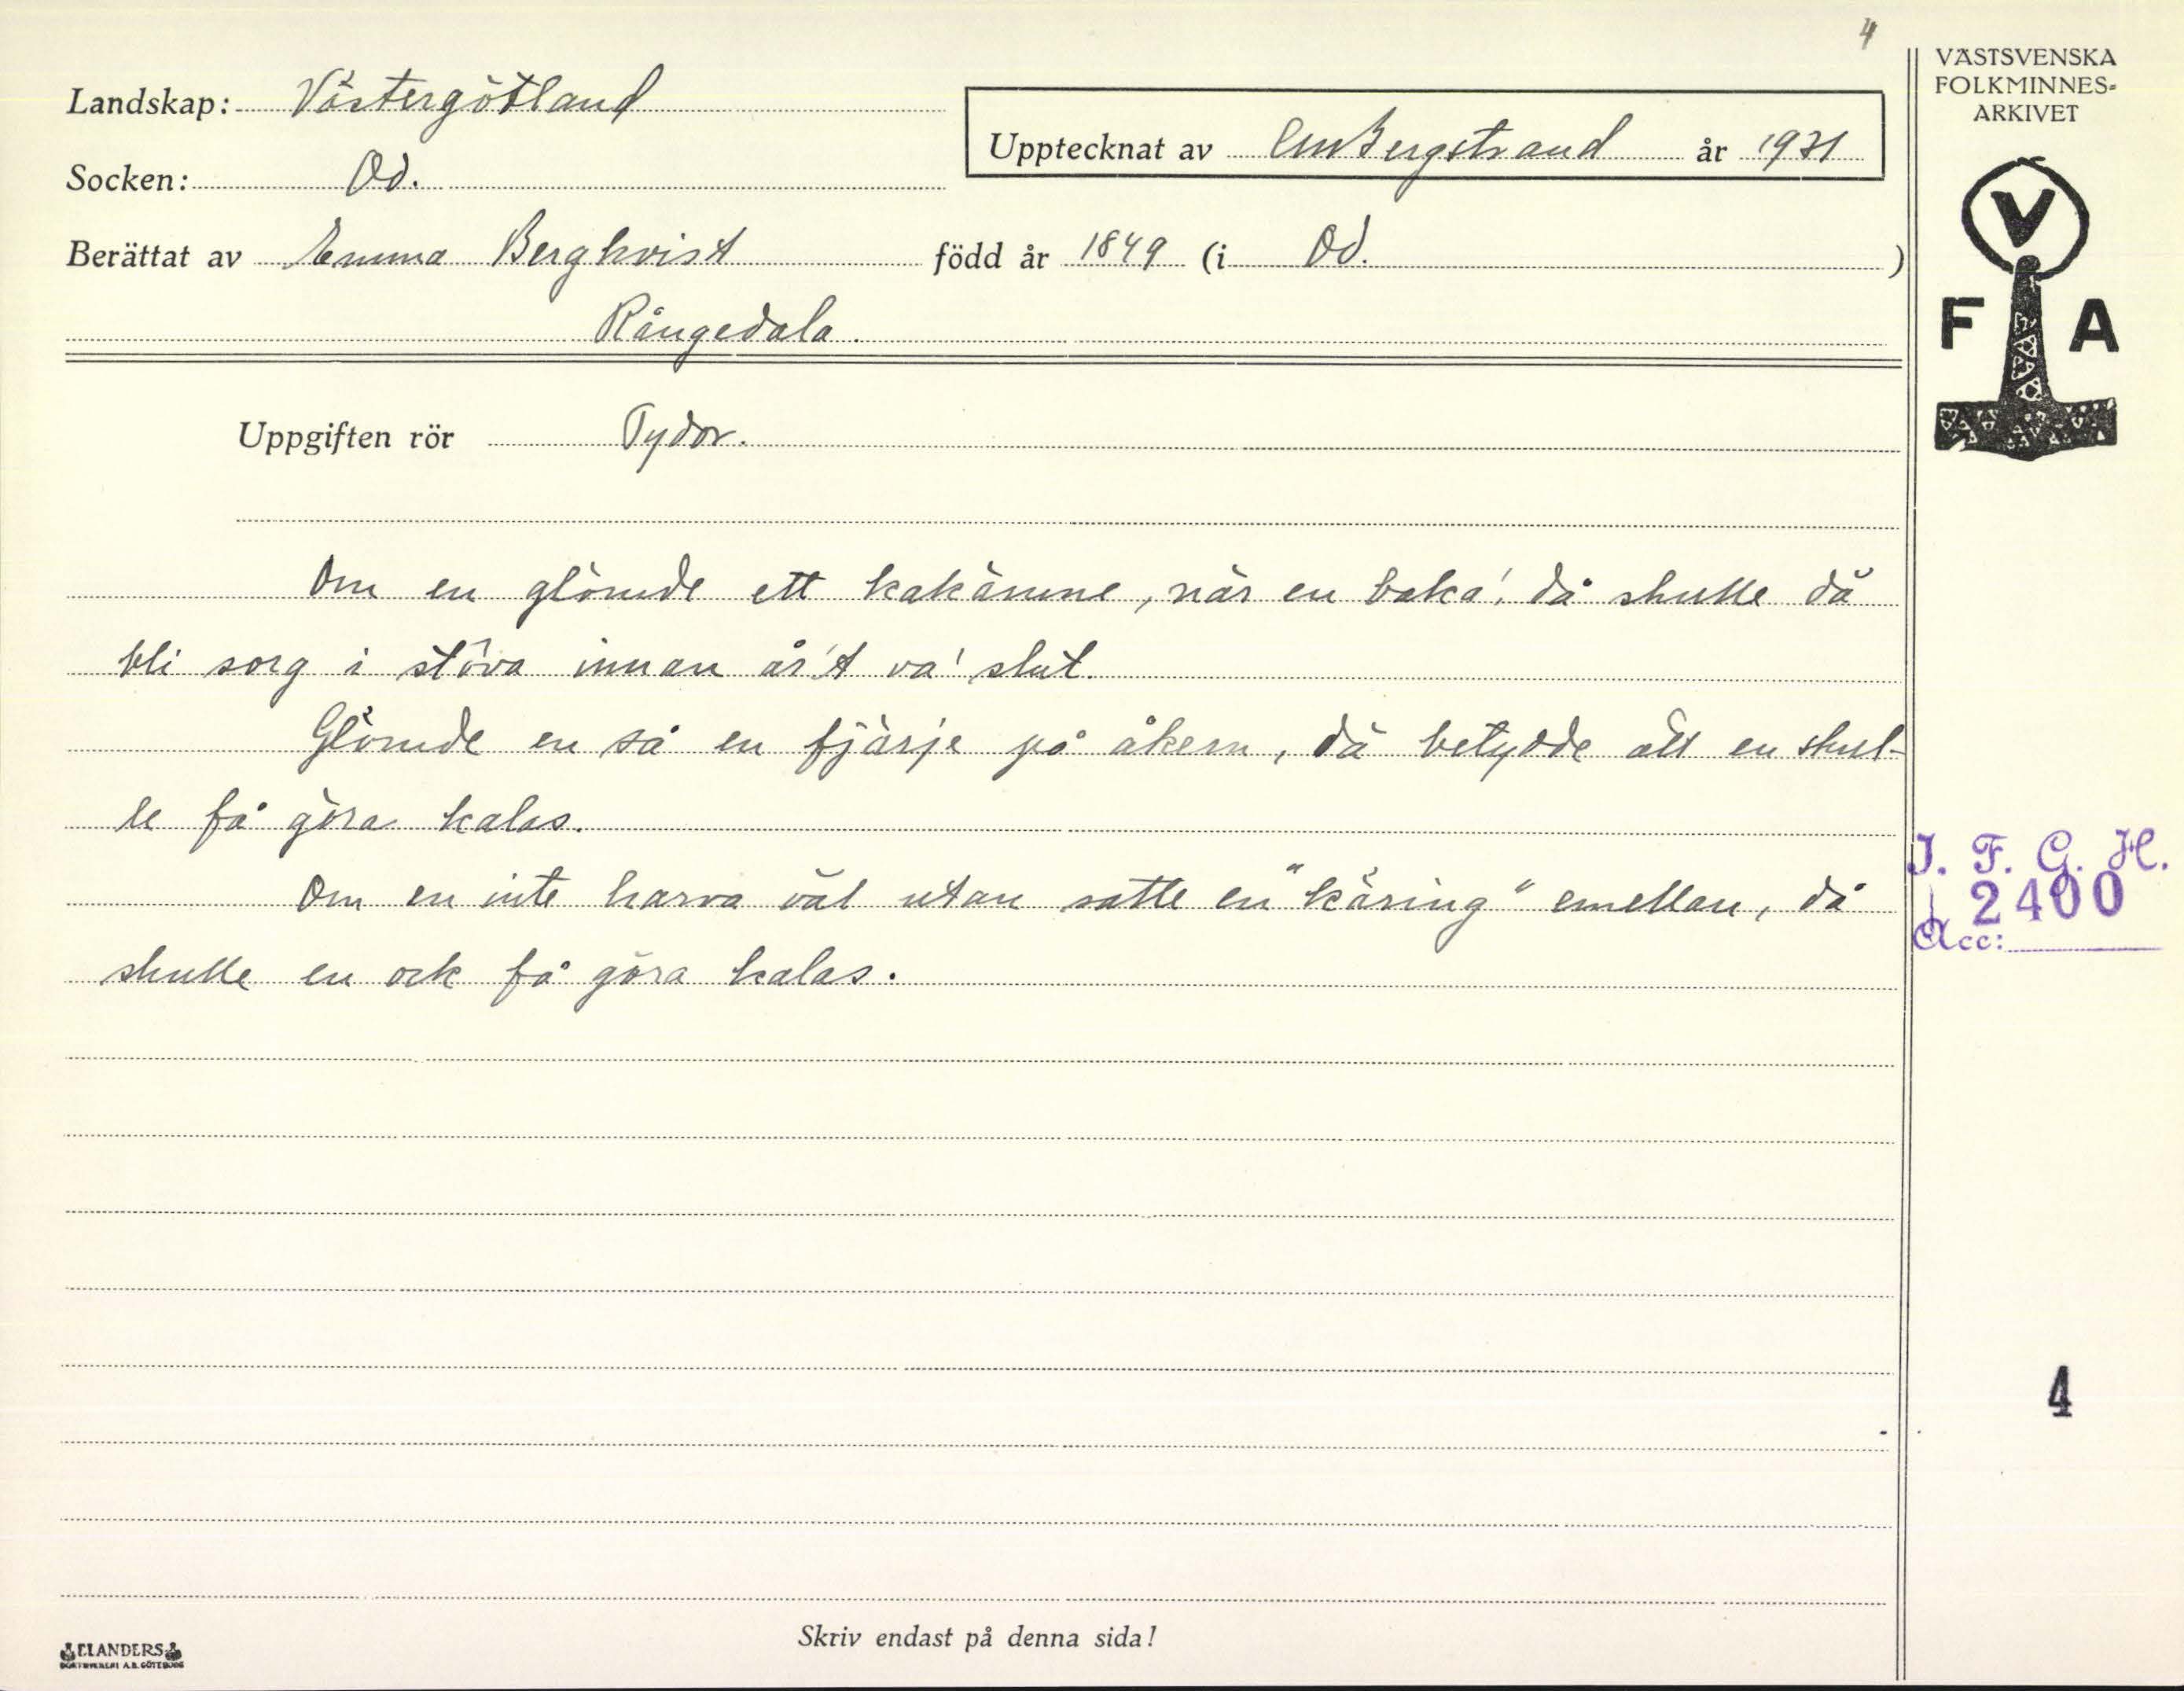 4
Landskap: Västergötland
Upptecknat av C.M. Bergstrand år 1931
Socken: Od.
Berättat av Emma Berghvist född år 1849 (i Od. )
Rångedala.
VÄSTSVENSKA
FOLKMINNES-
ARKIVET
V
F A
Uppgiften rör Tydor.
Om en glömde ett kakämne, när en baka', då skulle dä
bli sorg i stôva innan år't va' slut.
Glömde en så en fjärje på åkern, dä betydde att en skul-
le få göra kalas.
Om en inte harva väl utan satte en "käring" emellan, då
skulle en ock få göra kalas.
I. F. G. H.
2400
Acc:
4
Skriv endast på denna sida!
ELANDERS
BOKTRYCKERI A.B. GÖTEBORG